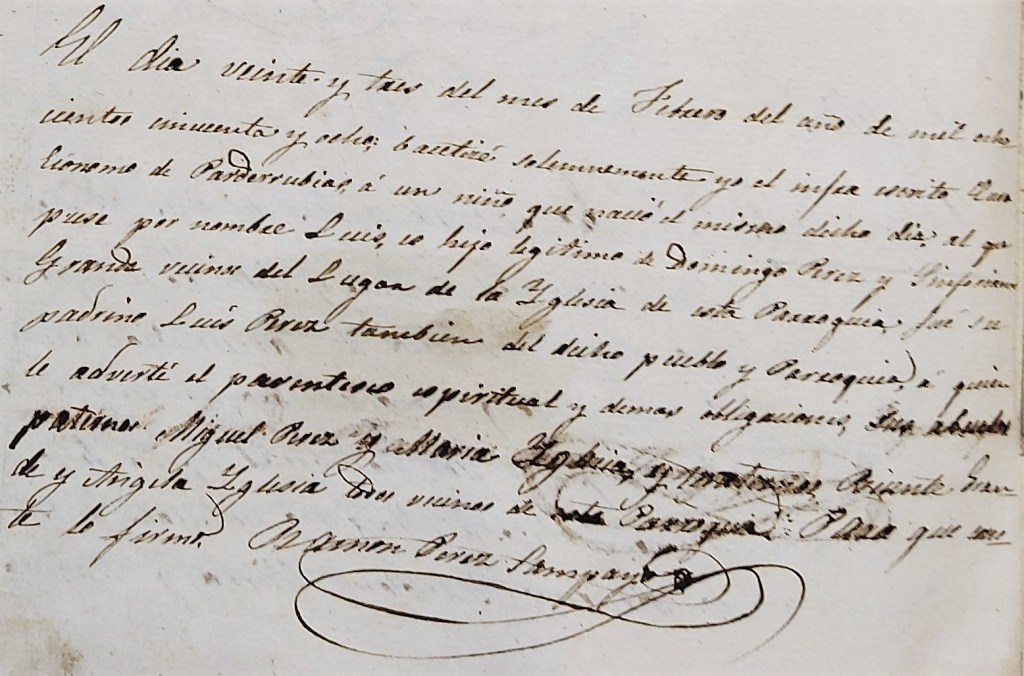 El dia veinte y tres del mes de Febrero del año de mil ocho
cientos cincuenta y ocho; bautizé solemnemente yo el infra escrito Cura
Ecónomo de Parderrubias, á un niño, que nació el mismo dicho dia, al que
puse por nombre Luis, es hijo legitimo de Domingo Perez y
Grande vecinos del Lugar de la Yglesia de esta Parroquia, fué su
padrino Luis Perez tambien del dicho pueblo y Parroquia, á quien
le adverté el parentesco espiritual y demas obligaciones, sus abuelos
paternos Miguel Perez y Maria Yglesia, y maternos Vicente Gran-
de y Angela Yglesia todos vecinos de esta Parroquia: Para que cons-
te lo firmo. Ramon Perez